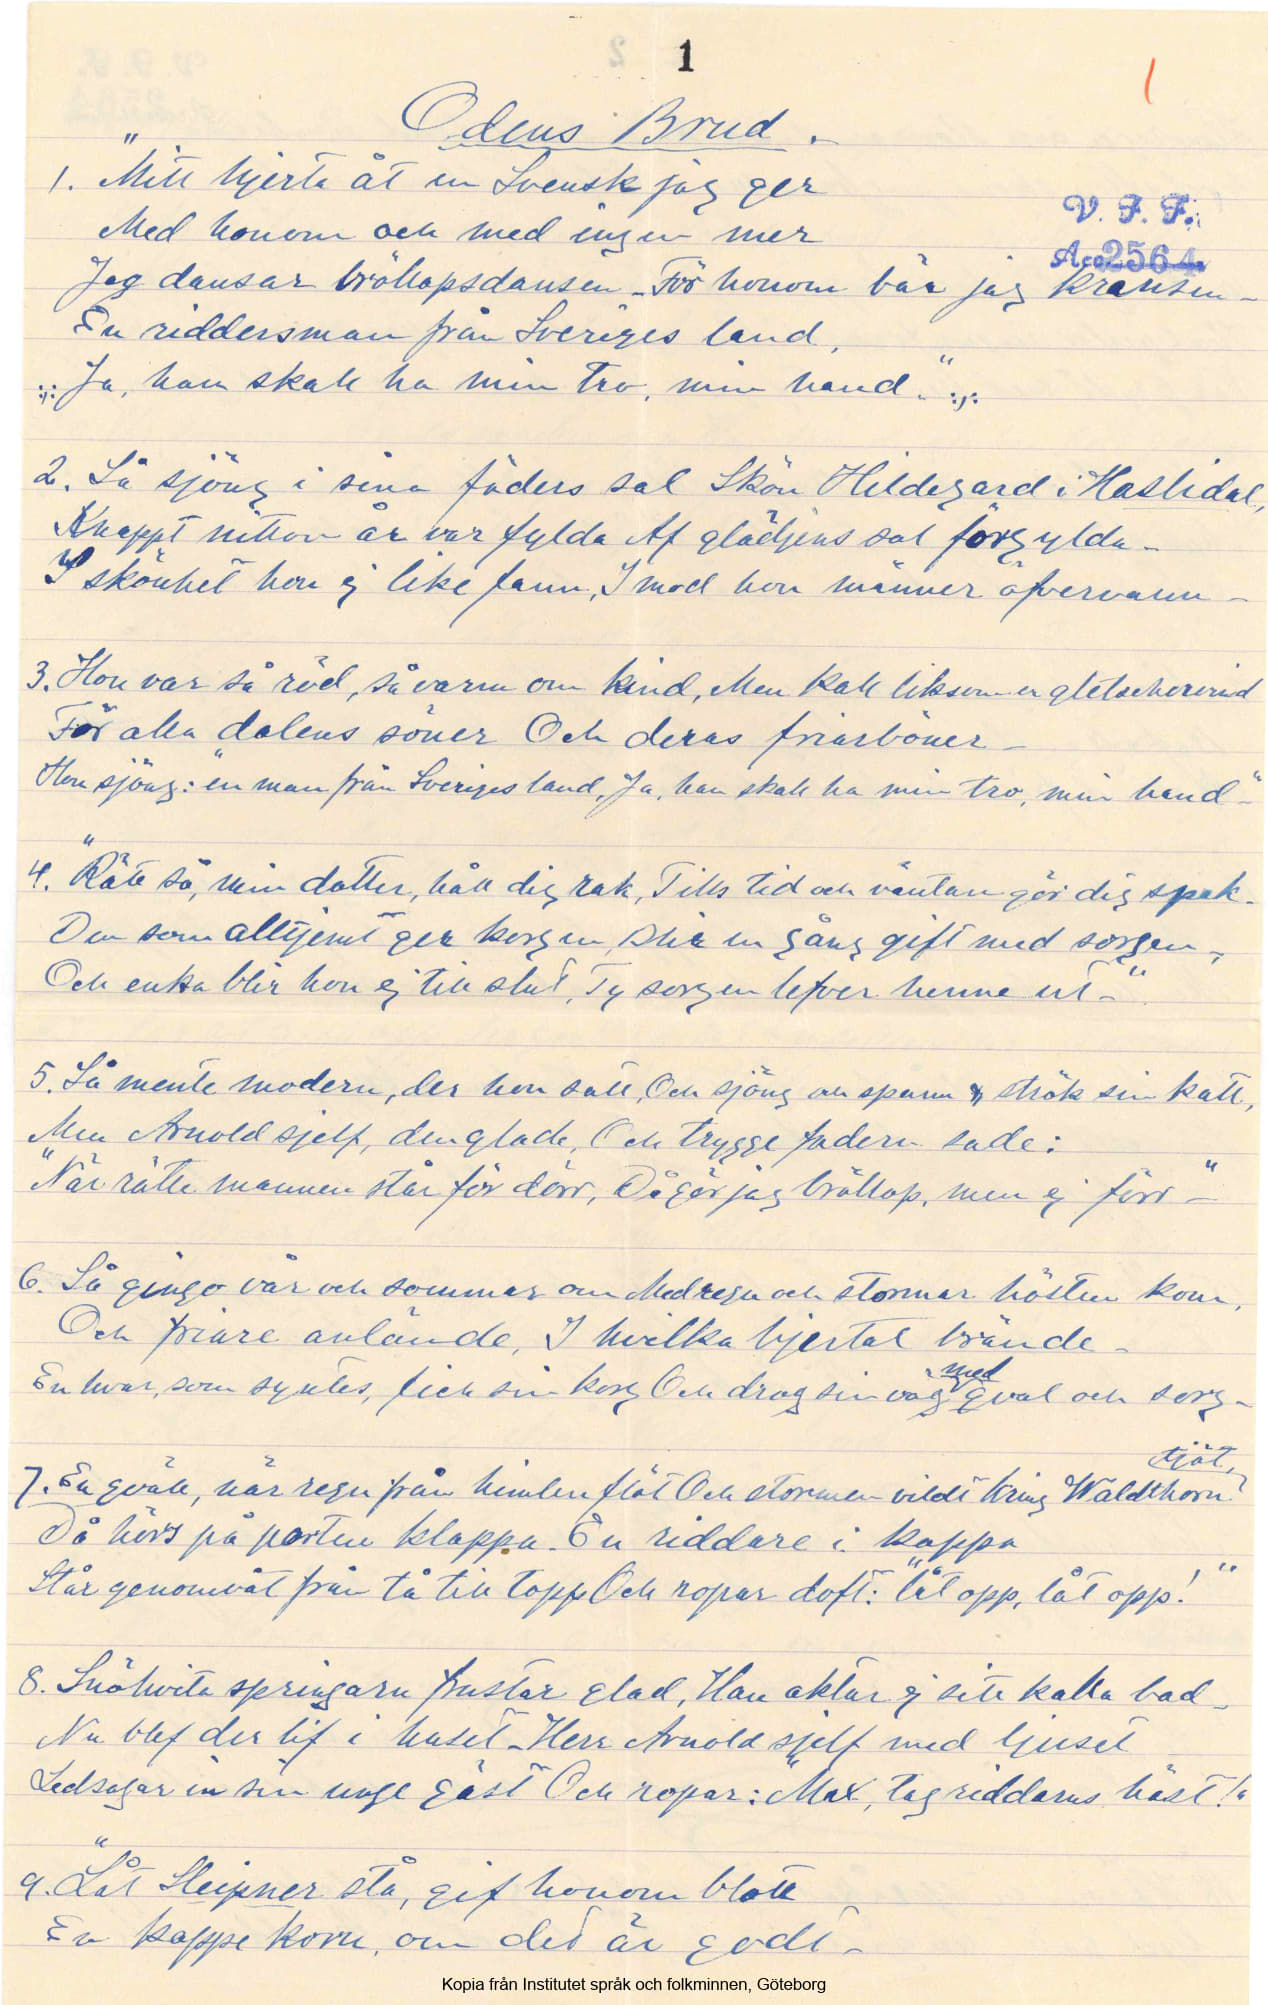 1
Odens Brud.
1. "Mitt hjerta åt en Svensk jag ger
Med honom och med ingen mer
Jag dansar bröllopsdansen – För honom bär jag kransen –
En riddersman från Sveriges land,
:,: Ja, han skall ha min tro, min hand." :,:
V. F. F.
Acc 2564
2. Så sjöng i sina fäders sal Skön Hildegard i Haslidal,
Knappt nitton år var fylda Af glädjens sol förgylda –
I skönhet hon ej like fann, I mod hon männer öfvervann –
3. Hon var så röd, så varm om kind, Men kall liksom en gletschervind
För alla dalens söner Och deras friarböner –
Hon sjöng: "en man från Sveriges land, Ja, han skall ha min tro, min hand" –
4. "Rätt så, min dotter, håll dig rak, Tills tid och väntan gör dig spak –
Den som alltjemt ger korgen, Blir en gång gift med sorgen,
Och enka blir hon ej till slut, Ty sorgen lefver henne ut –"
5. Så mente modern, der hon satt, Och sjöng och spann & strök sin katt,
Men Arnold sjelf, den glade, Och trygge fadern sade:
"När rätte mannen står för dörr, Då gör jag bröllop, men ej förr" –
6. Så gingo vår och sommar om Med regn och stormar hösten kom,
Och friare anlände, I hvilka hjertat brände –
En hvar, som syntes, fick sin korg Och drog sin väg med qval och sorg –
7. En qväll, när regn från himlen flöt Och stormen vildt kring Waldthorn tjöt,
Då hörs på porten klappa. En riddare i kappa
Står genomvåt från tå till topp Och ropar doft: "låt opp, låt opp!"
8. Snöhvita springarn frustar glad, Han aktar ej sitt kalla bad –
Nu blef der lif i huset – Herr Arnold sjelf med ljuset
Ledsagar in sin unge gäst Och ropar: "Max, tag riddarns häst!"
9. "Låt Sleipner stå, gif honom blott
En kappe korn, om det är godt –
Kopia från Institutet språk och folkminnen, Göteborg